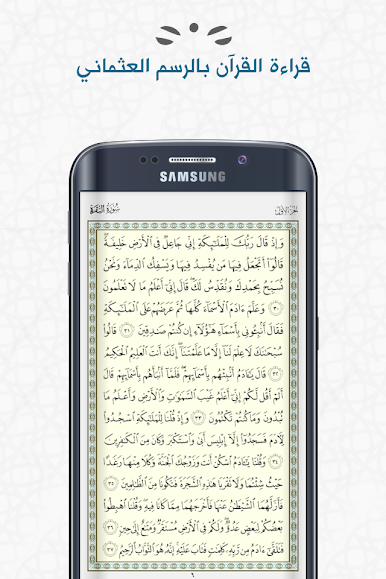 قراءة القرآن بالرسم العثماني
SAMSUNG
الجزء الأول
سورة البقرة
وَإِذْ قَالَ رَبُّكَ لِلْمَلَٰٓئِكَةِ إِنِّى جَاعِلٌ فِى ٱلْأَرْضِ خَلِيفَةً
قَالُوٓا۟ أَتَجْعَلُ فِيهَا مَن يُفْسِدُ فِيهَا وَيَسْفِكُ ٱلدِّمَآءَ وَنَحْنُ
نُسَبِّحُ بِحَمْدِكَ وَنُقَدِّسُ لَكَ قَالَ إِنِّىٓ أَعْلَمُ مَا لَا تَعْلَمُونَ
٣٠ وَعَلَّمَ ءَادَمَ ٱلْأَسْمَآءَ كُلَّهَا ثُمَّ عَرَضَهُمْ عَلَى ٱلْمَلَٰٓئِكَةِ
فَقَالَ أَنۢبِـُٔونِى بِأَسْمَآءِ هَٰٓؤُلَآءِ إِن كُنتُمْ صَٰدِقِينَ ٣١ قَالُوا۟
سُبْحَٰنَكَ لَا عِلْمَ لَنَآ إِلَّا مَا عَلَّمْتَنَآ إِنَّكَ أَنتَ ٱلْعَلِيمُ ٱلْحَكِيمُ
٣٢ قَالَ يَٰٓـَٔادَمُ أَنۢبِئْهُم بِأَسْمَآئِهِمْ فَلَمَّآ أَنۢبَأَهُم بِأَسْمَآئِهِمْ قَالَ
أَلَمْ أَقُل لَّكُمْ إِنِّىٓ أَعْلَمُ غَيْبَ ٱلسَّمَٰوَٰتِ وَٱلْأَرْضِ وَأَعْلَمُ مَا
تُبْدُونَ وَمَا كُنتُمْ تَكْتُمُونَ ٣٣ وَإِذْ قُلْنَا لِلْمَلَٰٓئِكَةِ ٱسْجُدُوا۟
لِـَٔادَمَ فَسَجَدُوٓا۟ إِلَّآ إِبْلِيسَ أَبَىٰ وَٱسْتَكْبَرَ وَكَانَ مِنَ ٱلْكَٰفِرِينَ
٣٤ وَقُلْنَا يَٰٓـَٔادَمُ ٱسْكُنْ أَنتَ وَزَوْجُكَ ٱلْجَنَّةَ وَكُلَا مِنْهَا رَغَدًا
حَيْثُ شِئْتُمَا وَلَا تَقْرَبَا هَٰذِهِ ٱلشَّجَرَةَ فَتَكُونَا مِنَ ٱلظَّٰلِمِينَ ٣٥
فَأَزَلَّهُمَا ٱلشَّيْطَٰنُ عَنْهَا فَأَخْرَجَهُمَا مِمَّا كَانَا فِيهِ وَقُلْنَا ٱهْبِطُوا۟
بَعْضُكُمْ لِبَعْضٍ عَدُوٌّ وَلَكُمْ فِى ٱلْأَرْضِ مُسْتَقَرٌّ وَمَتَٰعٌ إِلَىٰ حِينٍ
٣٦ فَتَلَقَّىٰٓ ءَادَمُ مِن رَّبِّهِۦ كَلِمَٰتٍ فَتَابَ عَلَيْهِ إِنَّهُۥ هُوَ ٱلتَّوَّابُ ٱلرَّحِيمُ ٣٧
٦